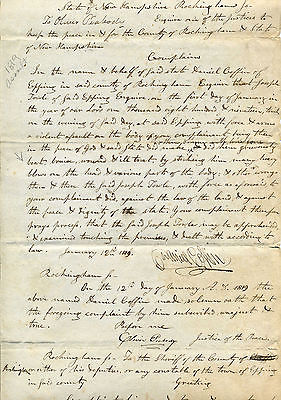 State of New Hampshire Rockingham ss.
To Oliver Peabody Esquire one of the justices to
keep the peace in & for the County of Rockingham & State
of New Hampshire
Complains
In the name & behalf of said state Daniel Coffin of
Epping in said county of Rockingham Esquire that Joseph
of said Epping Esquire, on the first day of January in
the year of our Lord one thousand eight hundred &
on the evening of said day, at said Epping with force & arms
a violent assault on the body of your complainant being then
in the peace of God & said state did make & did then grievously
beat bruise, wound & ill treat by striking him many heavy
blows on the head & various parts of the body, & other wrongs
then & there the said Joseph with force as aforesaid to
your complainant did, against the law of the land & against
the peace & dignity of the state. Your complainant therefore
prays process, that the said Joseph may be apprehended
& examined touching the premises, & dealt with according to
law.
January 12th 1819.
Daniel Coffin
Rockingham ss.
On the 12th day of January A.D. 1819 the
above named Daniel Coffin made solemn oath that
the foregoing complaint by him subscribed was just &
true.
Before me
Justice of the Peace
Rockingham ss. To the Sheriff of the County of
Rockingham or either of his deputies, or any constable of the town of Epping
in said county
Greeting